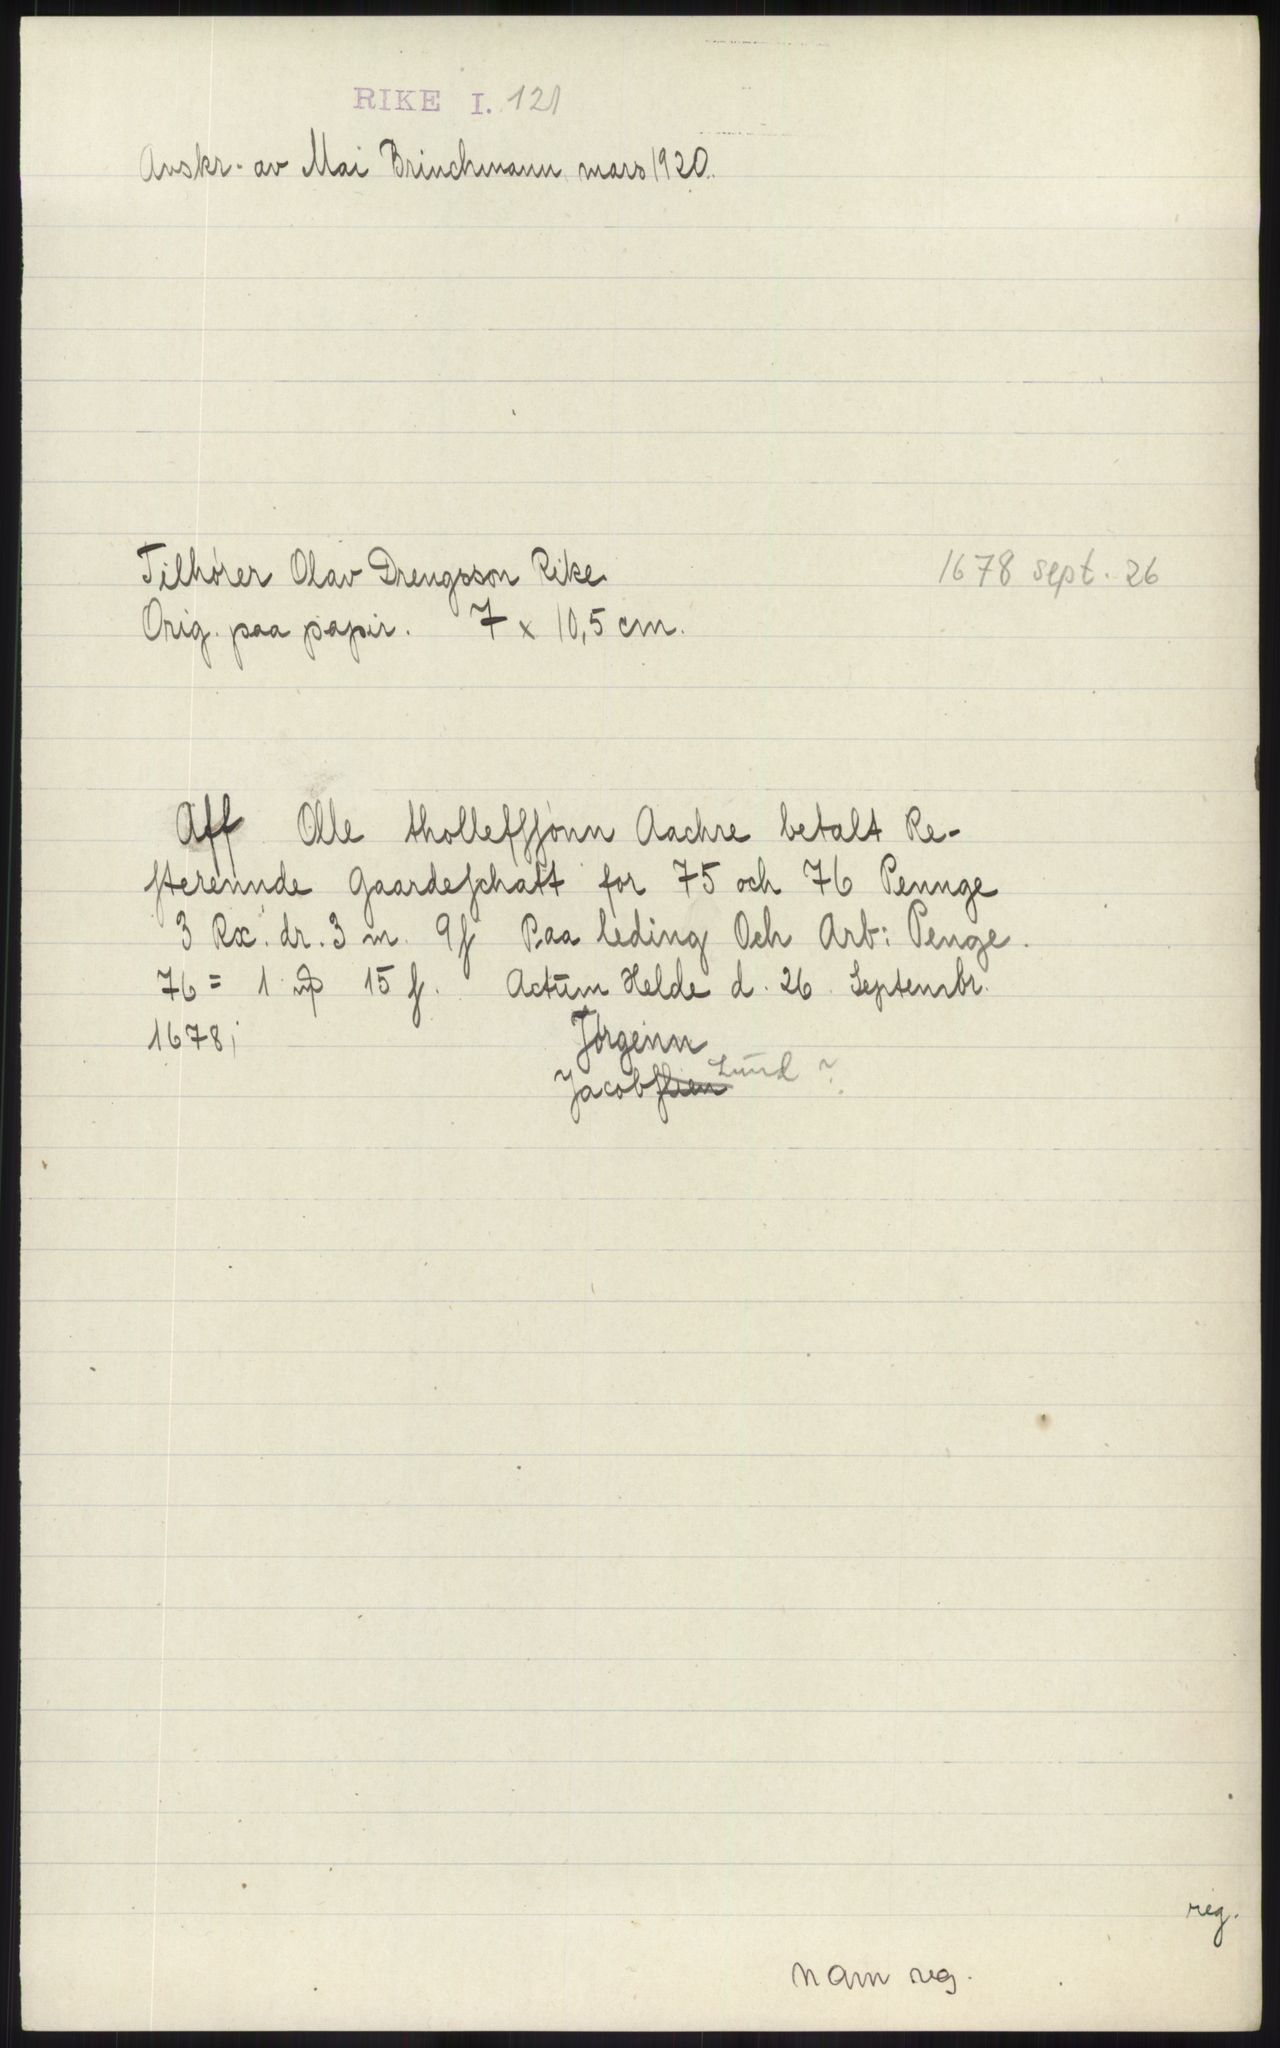 RIKE I. 121
Avskr. av Mai Brinchmann mars 1920.
Tilhører Olav Drengsson Rike
1678 sept. 26
Orig. paa papir. 7 x 10,5 cm.
Aff Olle thollefſſønn Aachre betalt Re-
ſterennde gaardeſchatt for 75 och 76 Pennge
3 Rx. dr. 3 m. 9 ſ Paa leding Och Arb: Penge.
76 = 1 15 ſ. Actum Helde d. 26 Septembr.
1678;
Jørgenn
Lund ?
Jacobſſen
reg.
nam reg.